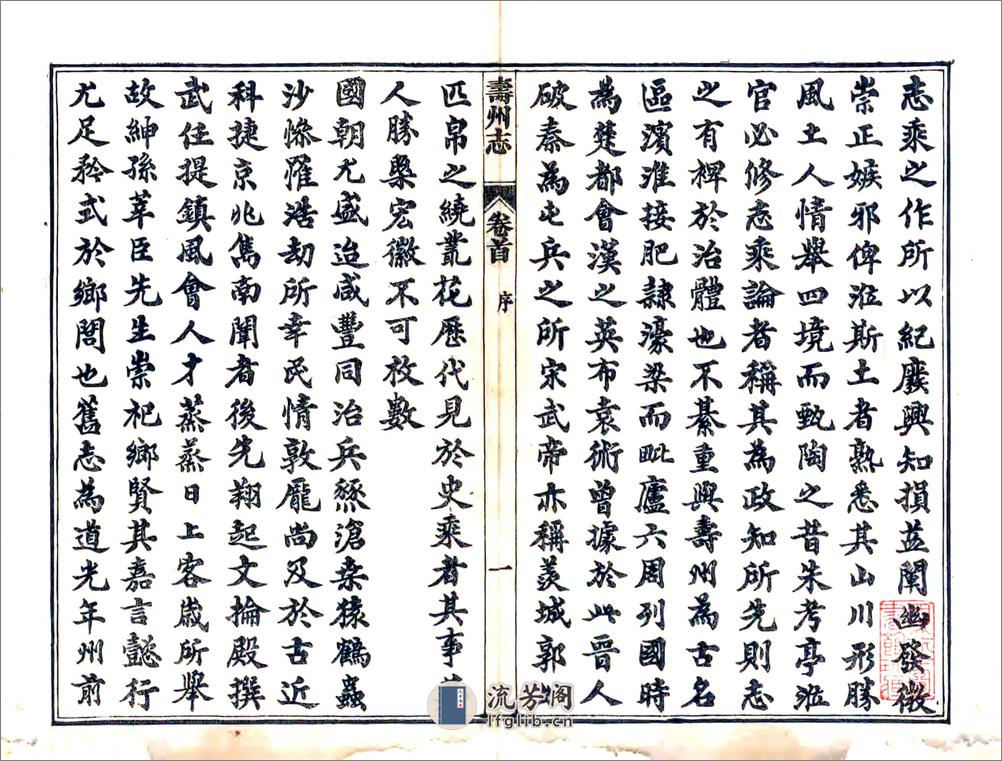 志乘之作所以紀廢興知損益闡幽發微
崇正嫉邪俾涖斯土者熟悉其山川形勝
風土人情舉四境而甄陶之昔朱考亭涖
官必修志乘論者稱其為政知所先則志
之有裨於治體也不綦重與壽州為古名
區濱淮接肥隸濠梁而毗廬六周列國時
為楚都會漢之英布袁術曾據於此晉人
破秦為屯兵之所宋武帝亦稱羨城郭
壽州志
卷首
序
一
匹帛之繞叢花歷代見於史乘者其事
人勝槩宏徽不可枚數
國朝尤盛迨咸豐同治兵燹滄桑猿鶴蟲
沙慘罹浩劫所幸民情敦龐尚及於古近
科捷京兆雋南闈者後先翔起文掄殿撰
武任提鎮風會人才蒸蒸日上客歲所舉
故紳孫莘臣先生崇祀鄉賢其嘉言懿行
尤足矜式於鄉閭也舊志為道光年州前
流芳阁
lfglib.cn